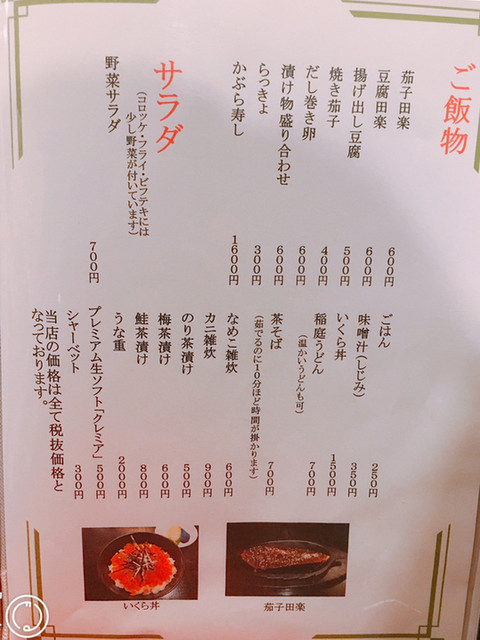 ご飯物
茄子田楽 600円
豆腐田楽 600円
揚げ出し豆腐 500円
焼き茄子 400円
だし巻き卵 600円
漬け物盛り合わせ 600円
らっきょ 300円
かぶら寿し 1600円
サラダ
(コロッケ・フライ・ビフテキには
少し野菜が付いています)
野菜サラダ 700円
ごはん 250円
味噌汁(しじみ) 350円
いくら丼 1500円
稲庭うどん 700円
(温かいうどんも可)
茶そば 700円
(茹でるのに10分ほど時間が掛かります)
なめこ雑炊 600円
カニ雑炊 900円
のり茶漬け 500円
梅茶漬け 600円
鮭茶漬け 800円
うな重 2000円
プレミアム生ソフト「クレミア」 500円
シャーベット 300円
当店の価格は全て税抜価格と
なっております。
いくら丼
茄子田楽